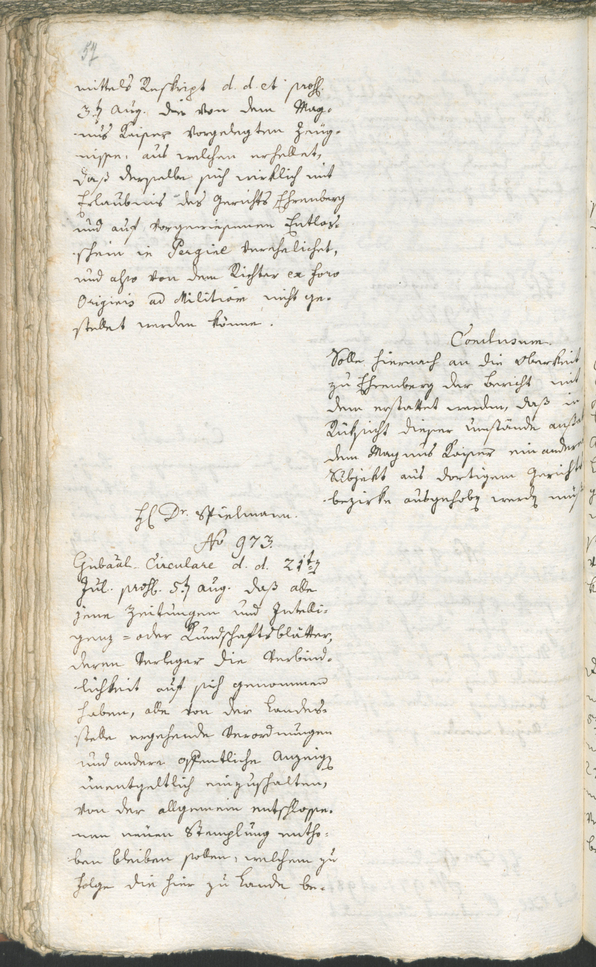 57
mittels Reskript d. d. et prs.
3t Aug. die von dem Mag-
nus Kaiser vorgelegten Zeug-
nisse, aus welchen erhellet,
daß derselbe sich wirklich mit
Erlaubnis des Gerichts Ehrenberg
und auf vorgewiesenen Entlas-
schein in Pergine verehelichet,
und also von dem Richter ex foro
Originis ad Militiam nicht ge-
stellet werden könne.
Conclusum.
Solle hiernach an die Oberkeit
zu Ehrenberg der Bericht mit
dem erstattet werden, daß in
Rüksicht dieser Umstände anstat
dem Magnus Kaiser ein anderes
Subjekt aus dortigem Gerichts
bezirke ausgehoben werden müsse
H. Dr. Spielmann.
No 973.
Gubaal. Circulare d. d. 21t
Jul. prs. 5t Aug. daß alle
jene Zeitungen und Intelli-
genz- oder Kundschaftsblätter,
deren Verleger die Verbind-
lichkeit auf sich genommen
haben, alle von der Landes-
stelle ergehende Verordnungen
und andere öffentliche Anzeigen
unentgeltlich einzuschalten,
von der allgemein entschlosse-
nen neuen Stemplung entho-
ben bleiben sollen, welchem zu
folge die hier zu Lande be-